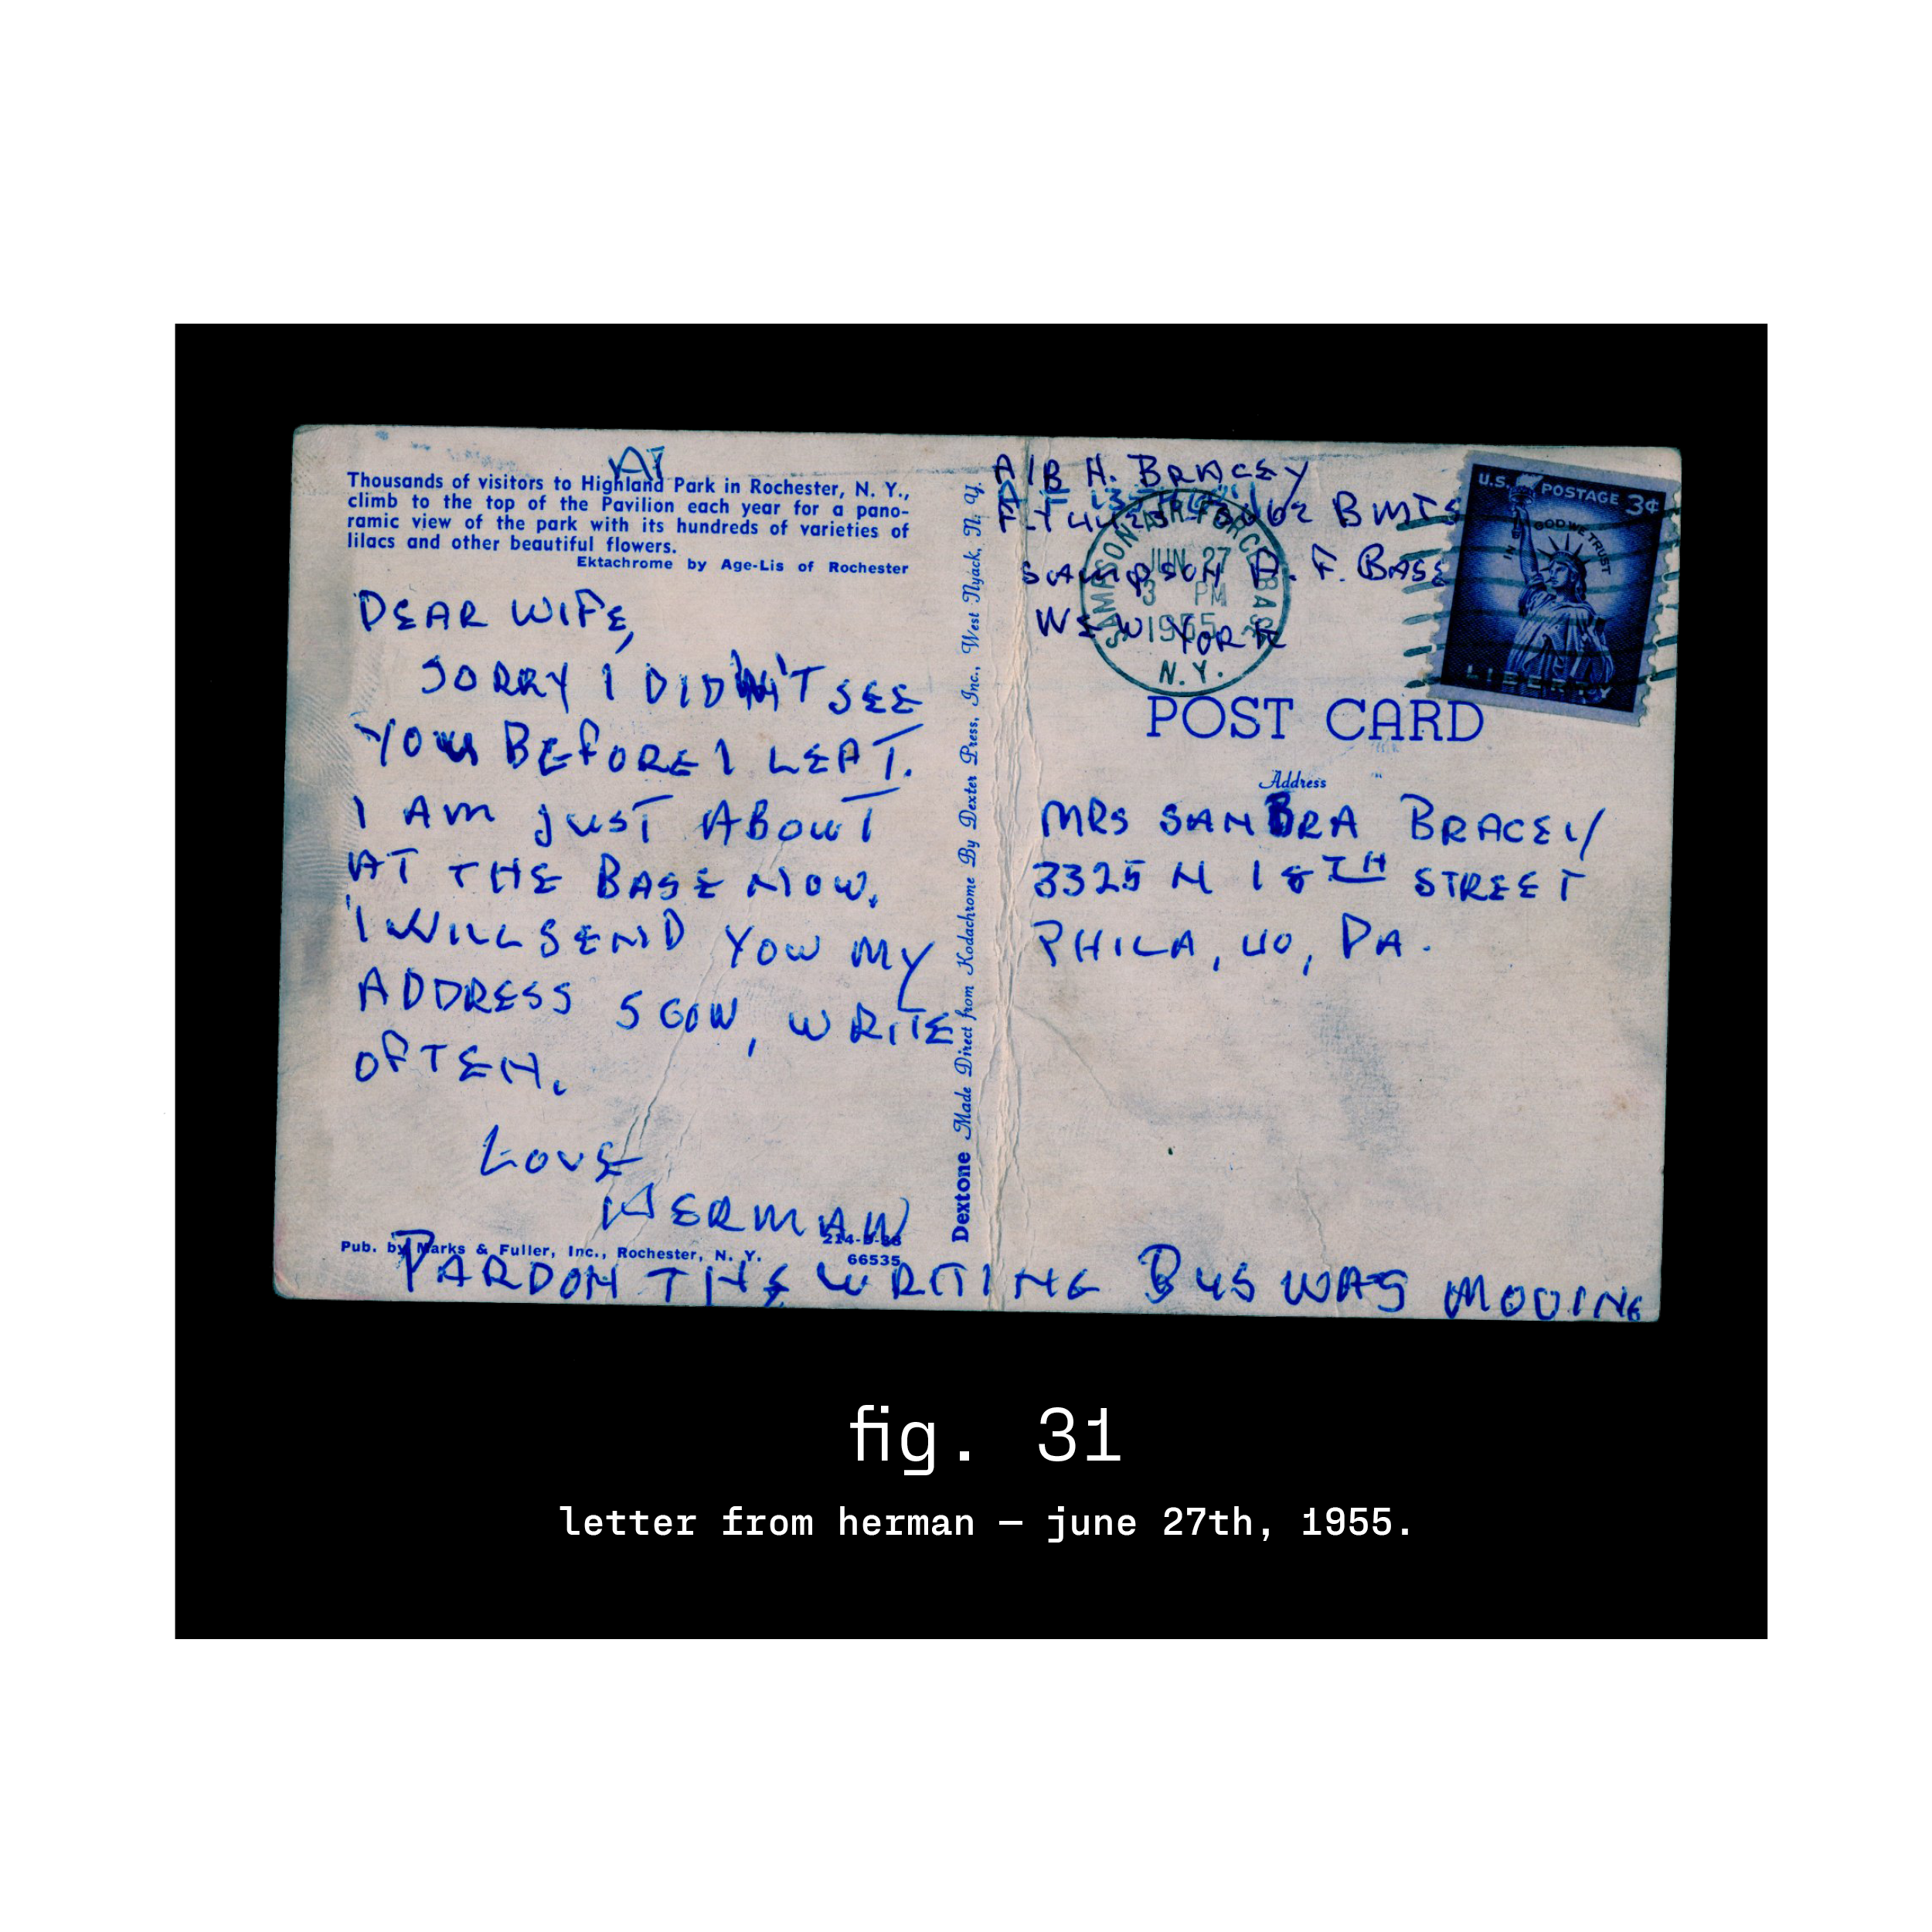 AT
Thousands of visitors to Highland Park in Rochester, N. Y.,
climb to the top of the Pavilion each year for a pano-
ramic view of the park with its hundreds of varieties of
lilacs and other beautiful flowers.
Ektachrome by Age-Lis of Rochester
DEAR WIFE,
SORRY I DIDN'T SEE
YOU BEFORE I LEFT.
I AM JUST ABOUT
AT THE BASE NOW.
I WILL SEND YOU MY
ADDRESS SOON, WRITE
OFTEN.
LOVE
HERMAN
Pub. by Marks & Fuller, Inc., Rochester, N. Y.
66535
PARDON THE WRITING BUS WAS MOVING
Dextone Made Direct from Kodachrome By Dexter Press, Inc., West Nyack, N. Y.
A/B H. BRACEY
BMTS
SAMPSON A. F. BASE
NEW YORK
SAMPSON AIR FORCE BASE
JUN 27
3 PM
1955
N.Y.
U.S. POSTAGE 3¢
IN GOD WE TRUST
LIBERTY
POST CARD
Address
MRS SANDRA BRACEY
3325 N 18TH STREET
PHILA, 40, PA.
fig. 31
letter from herman — june 27th, 1955.